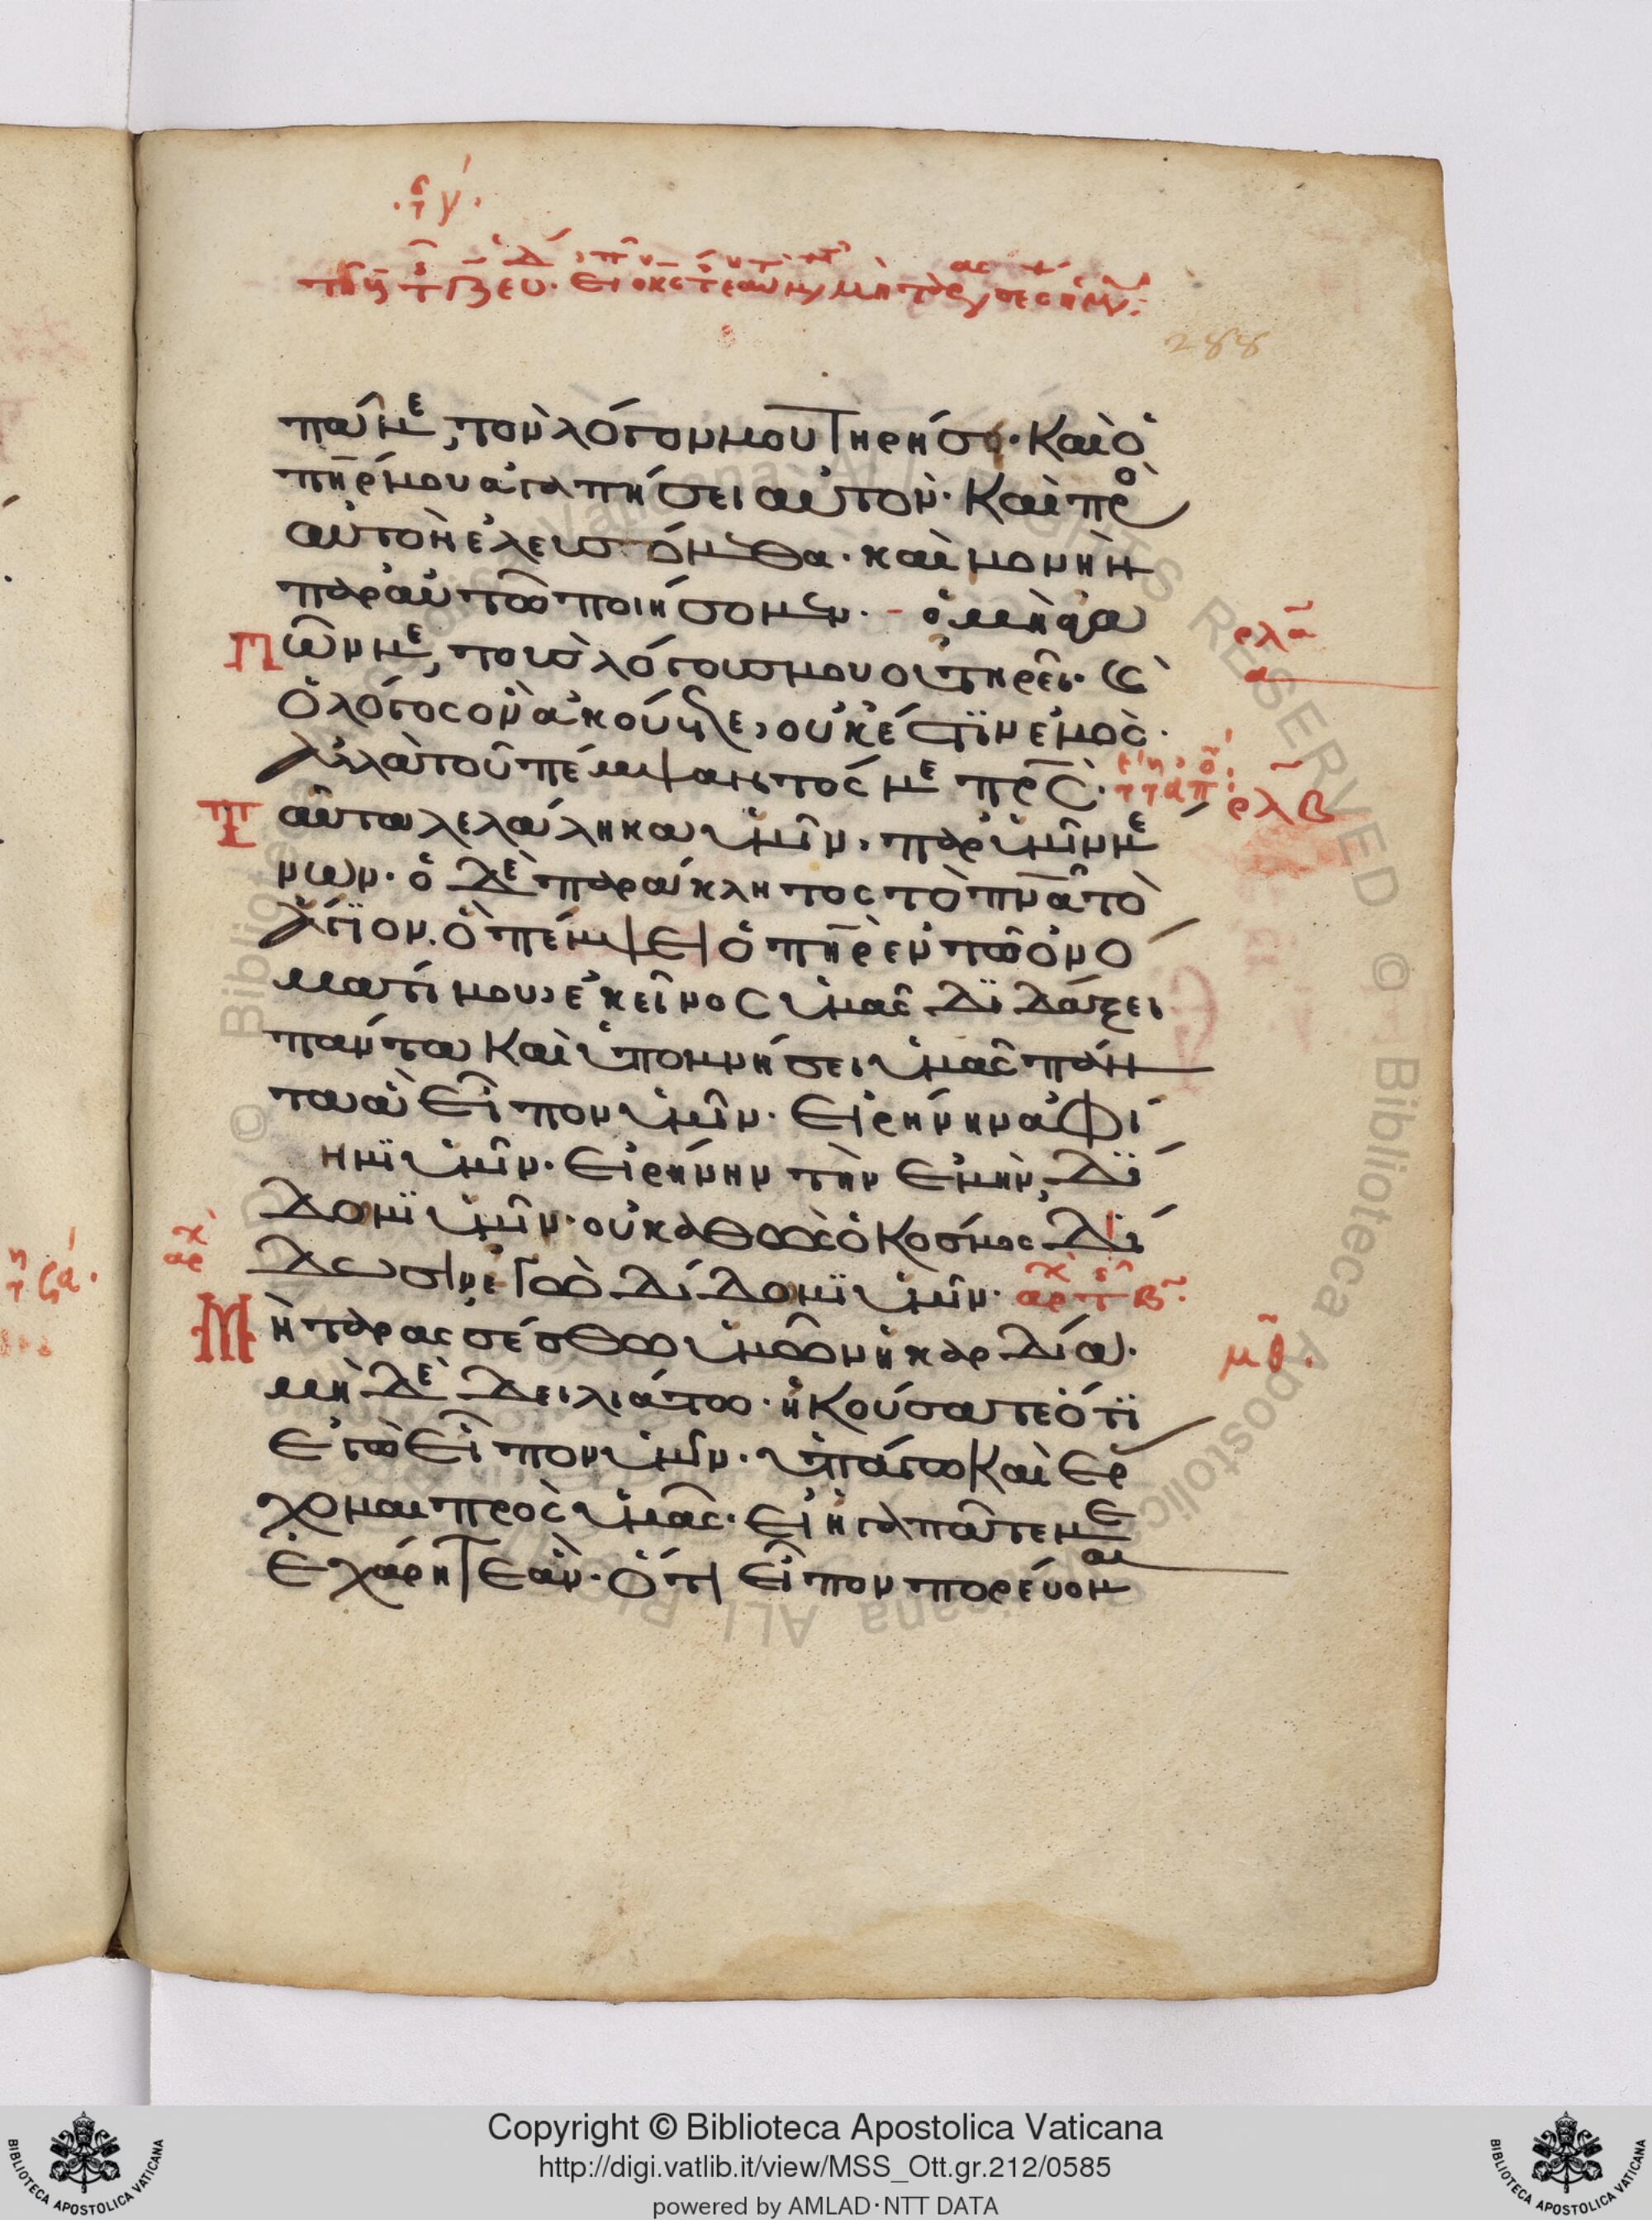 πᾷ με, τὸν λόγον μου τηρήσει· καὶ ὁ
πη̅ρ μου ἀγαπήσει αὐτὸν· καὶ πρὸ
αὐτὸν ἐλευσόμεθα· καὶ μονὴν
παρ αὐτῶ ποιήσομεν· ὁ μὴ ἀγα
πῶν με, τοὺς λόγους μου οὐ τηρεῖ· καὶ
ὁ λόγος ὃν ἀκούετε, οὐκ έστϊν ἐμὸς·
ἀλλὰ τοῦ πέμψαντός με πρ̅ς·
ταῦτα λελάληκα ὑμῖν, παρ ὑμῖν μέ
νων· ὁ δὲ παράκλητος τὸ πν̅α τὸ
ἅγϊον· ὃ πέμψει ὁ πη̅ρ ἐν τῶ ὀνό
ματί μου, ἐκεῖνος ὑμᾶς διδάξει
πάντα καὶ ὑπομνήσει ὑμᾶς πάν
τα ἃ εἶπον ὑμῖν· εἰρήνην ἀφί
ημϊ ὑμῖν· εἰρήνην τὴν ἐμὴν, δί
δωμϊ ὑμῖν· οὐ καθὼς ὁ κόσμος δί
δωσιν ἐγὼ δίδωμϊ ὑμῖν· ἀρχ τ β·
Μὴ ταρασσέσθω ὑμῶν ἡ καρδία·
μὴ δὲ δειλιάτω· ἠκούσατε ὅτϊ
ἐγὼ εἶπον ὑμῖν· ὑπάγω καὶ έρ
χομαι πρὸς ὑμᾶς· εἰ ἠγαπᾶτε με
ἐχάρητε ἂν· ὅτι εἶπον πορεύομαι
ρλα
α
ρλβ
αρχ
μθ
288
Copyright © Biblioteca Apostolica Vaticana
http://digi.vatlib.it/view/MSS_Ott.gr.212/0585
powered by AMLAD·NTT DATA
BIBLIOTECA APOSTOLICA VATICANA
BIBLIOTECA APOSTOLICA VATICANA